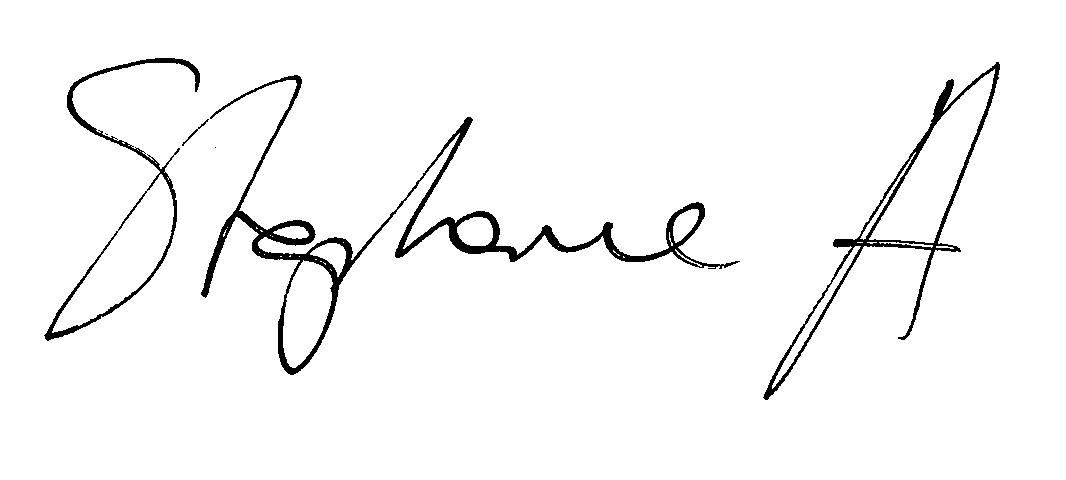 Stephanie A